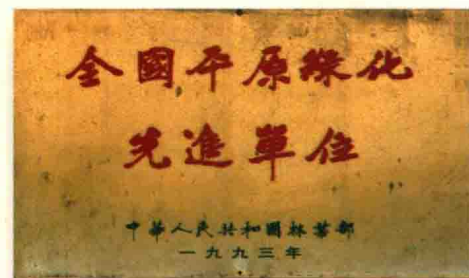 全國平原綠化
先進單位
中華人民共和國林業部
一九九三年